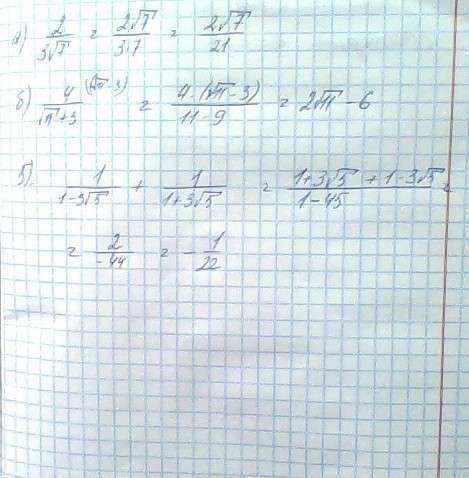 а) 2/3√7 = 2√7/3·7 = 2√7/21
б) 4^(√11-3)/√11+3 = 4·(√11-3)/11-9 = 2√11-6
5). 1/1-3√5 + 1/1+3√5 = 1+3√5+1-3√5/1-45 =
= 2/-44 = -1/22